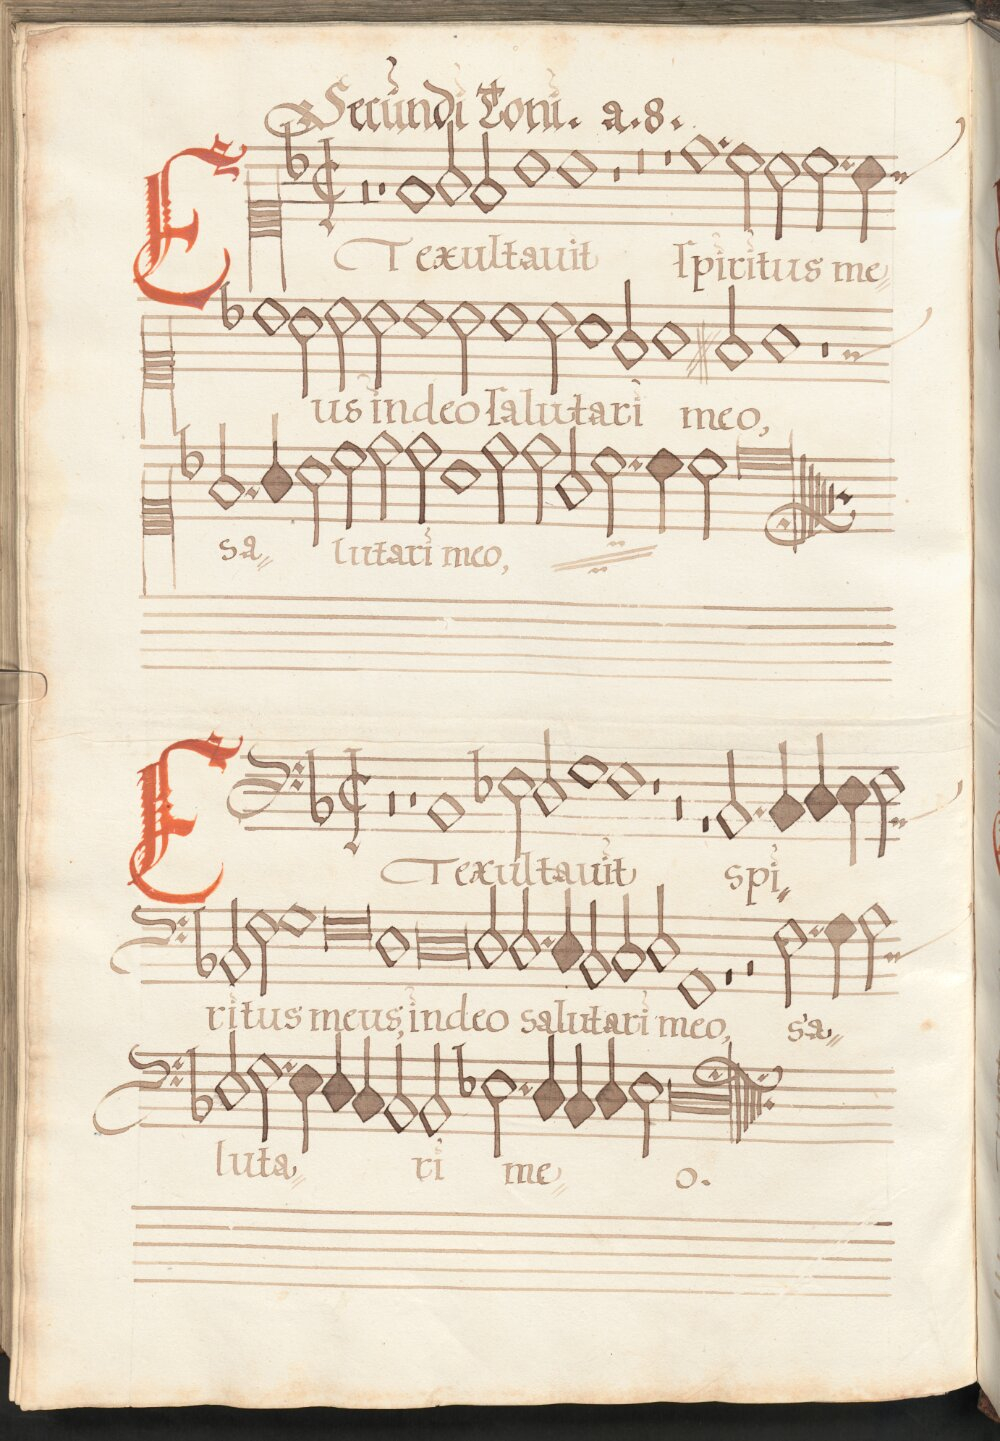 Secundi Toni. a.8.
ET exultauit spiritus me„
us in deo salutari meo,
sa„ lutari meo,
ET exultauit spi„
ritus meus, in deo salutari meo, sa„
luta„ ri me„ o.